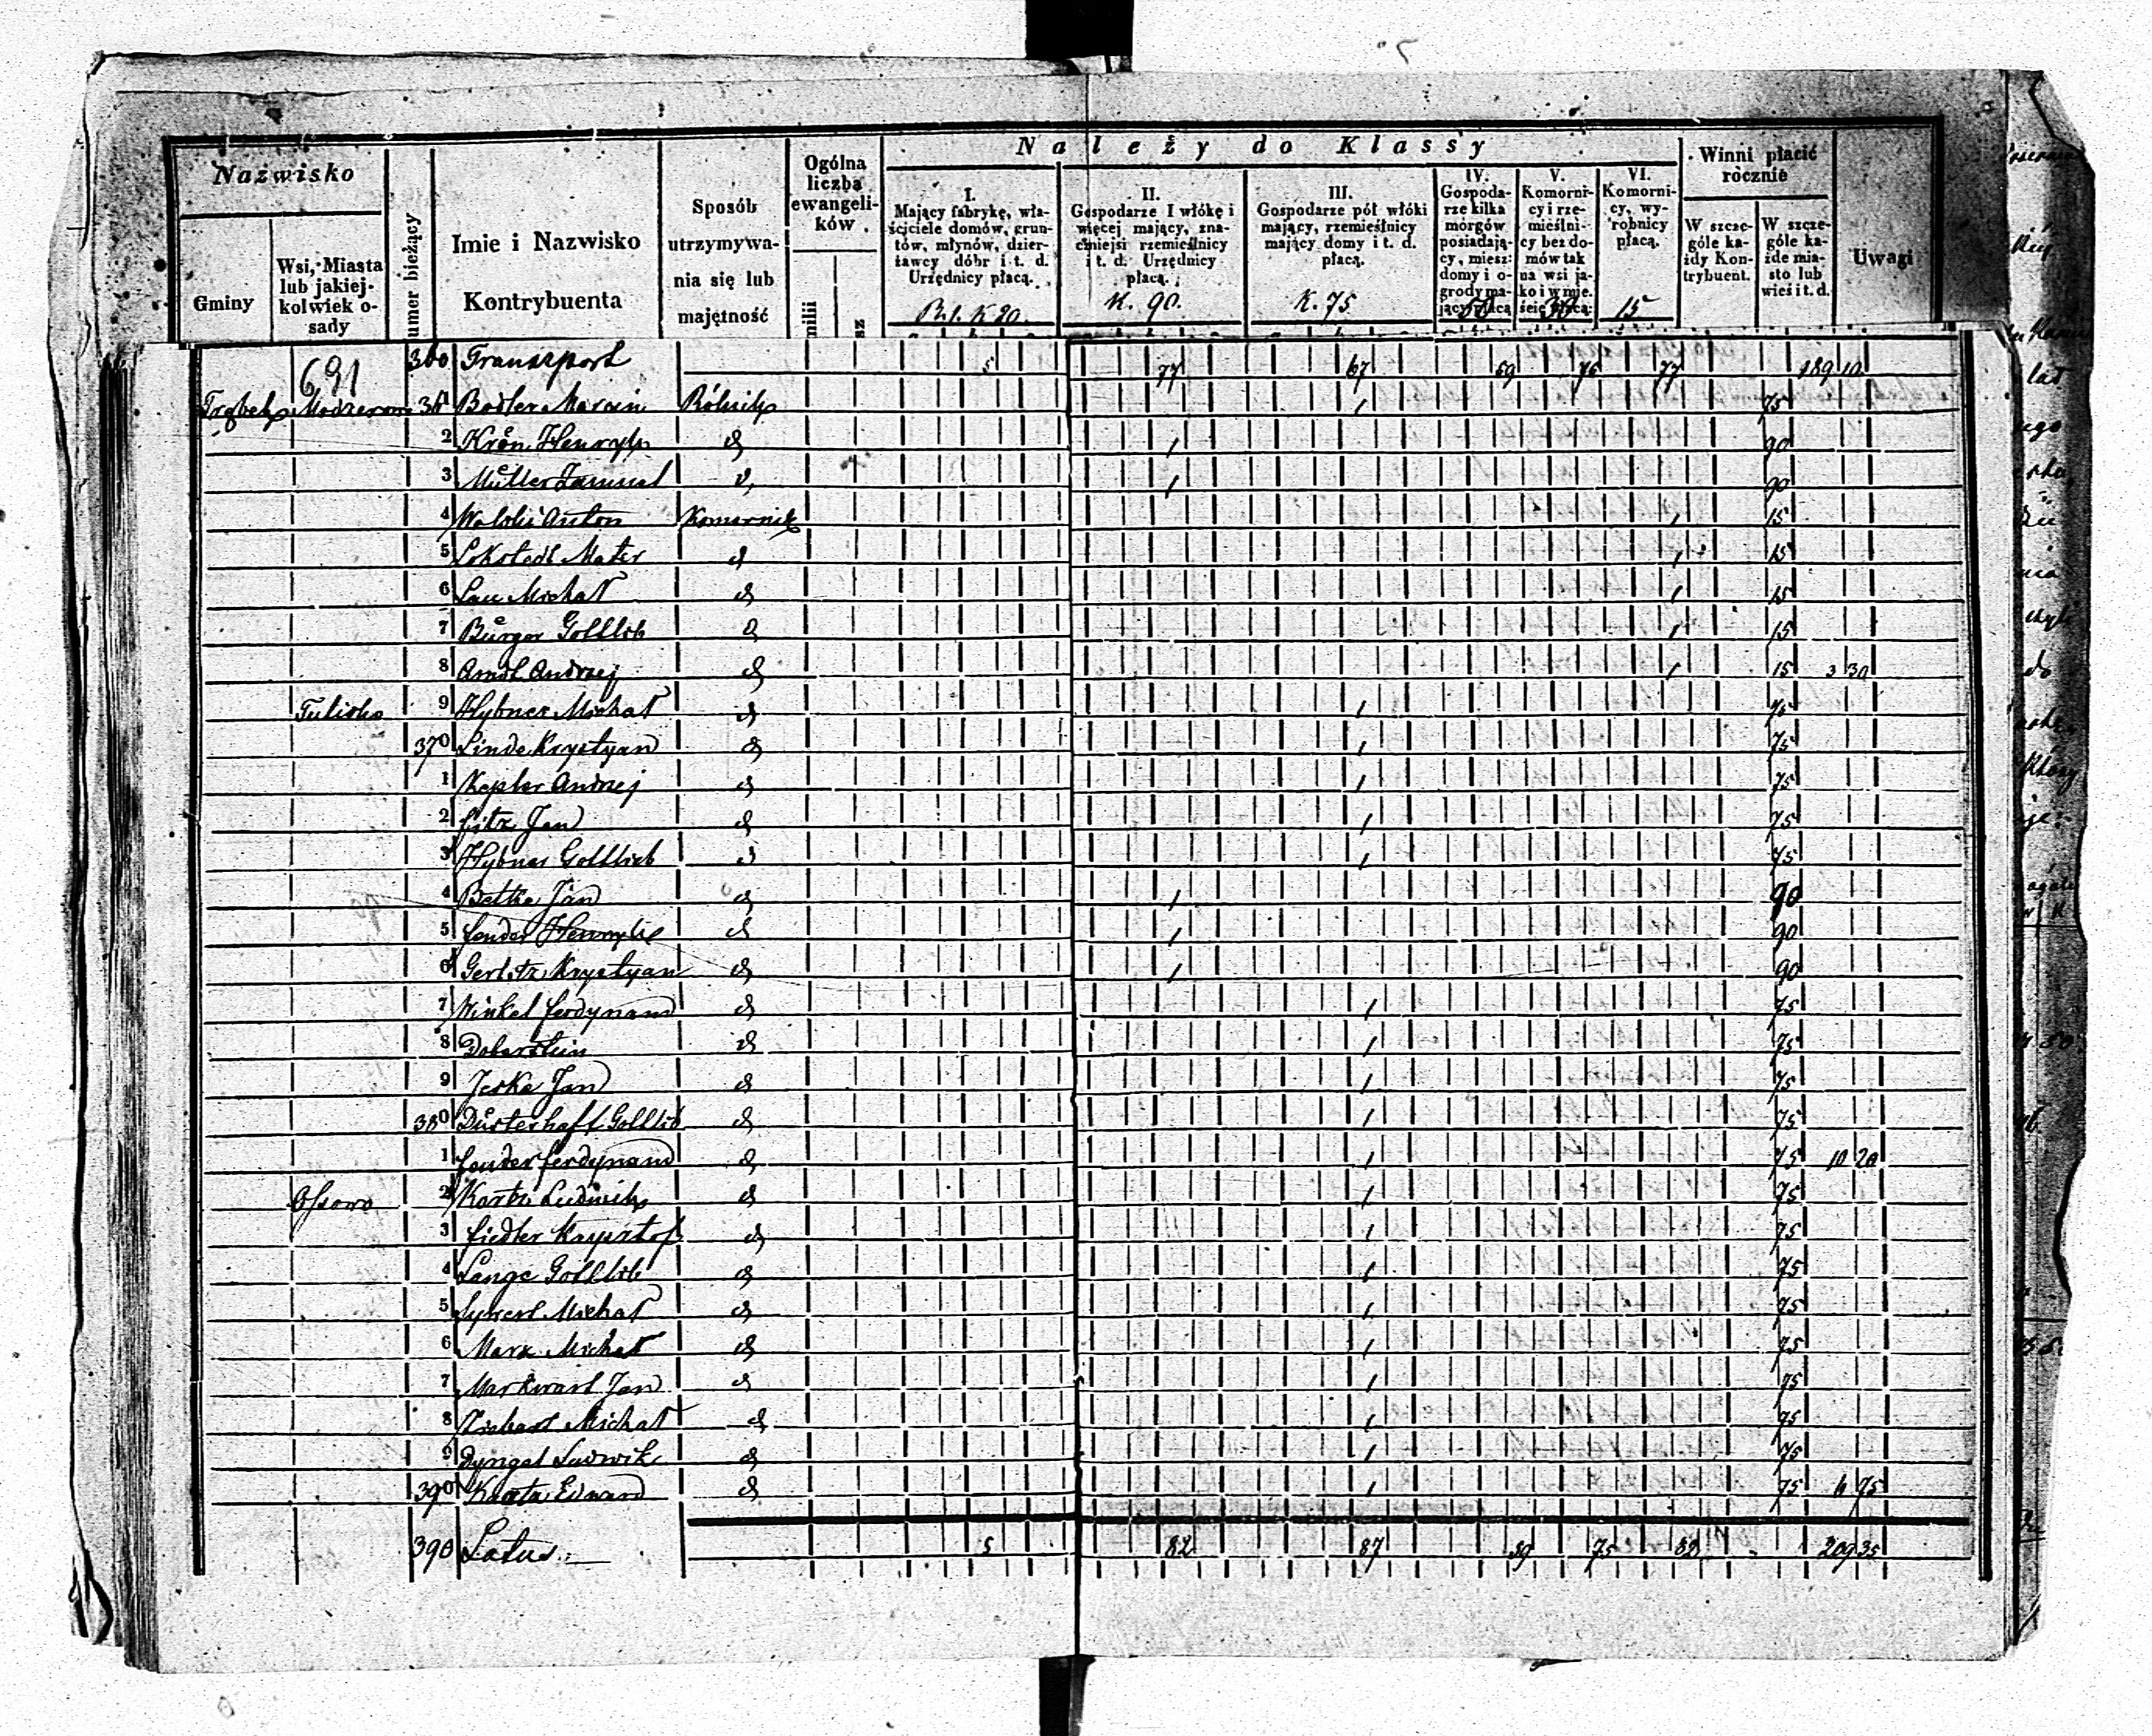 Należy do Klassy
Nazwisko
Gminy
Wsi, Miasta lub jakiej-kolwiek o-sady
umer bieżący
Imie i Nazwisko Kontrybuenta
Sposób utrzymywa-nia się lub majętność
Ogólna liczba ewangeli-ków.
milii
sz
I. Mający fabrykę, wła-ściciele domów, grun-tów, młynów, dzier-żawcy dóbr i t. d. Urzędnicy płacą.
II. Gospodarze I włókę i więcej mający, zna-czniejsi rzemieślnicy i t. d. Urzędnicy płacą.
K. 90.
III. Gospodarze pół włóki mający, rzemieślnicy mający domy i t. d. płacą.
K. 75
IV. Gospoda-rze kilka morgów posiadają-cy, miesz: domy i o-grody ma-jący płacą
V. Komorni-cy i rze-mieślni-cy bez do-mów tak na wsi ja-ko i w mie-ście płacą:
VI. Komorni-cy, wy-robnicy płacą.
15
Winni płacić rocznie
W szcze-góle ka-żdy Kon-trybuent.
W szcze-góle ka-żde mia-sto lub wieś i t. d.
Uwagi
691 360 Transport 5 77 67 59 75 77 189 10
361 Badler Marcin Rolnik 1 75
2 Krön Henryk d 1 90
3 Müller Samuel d 1 90
4 Anton Komornik 1 15
5 Lokstedt d 1 15
6 Lau Michał d 1 15
7 Bürger Gottlib d 1 15
8 Arndt Andrzej d 1 15 3 30
9 Hybner Michał d 1 75
370 Linde Krystyan d 1 75
1 Kepler Andrzej d 1 75
2 Jan d 1 75
3 Gottlieb d 1 75
4 Betke Jan d 1 90
5 Fender Henryk d 1 90
6 Gerlitz Krystyan d 1 90
7 Winkel Ferdynand d 1 75
8 Doberstein d 1 75
9 Jeske Jan d 1 75
380 Düsterhaft Gottlib d 1 75
1 Fender Ferdynand d 1 75 10 20
Ossowo 2 Ludwik d 1 75
3 Fiedler Krysztof d 1 75
4 Lange Gottlib d 1 75
5 Michał d 1 75
6 Marx Michał d 1 75
7 Markwart Jan d 1 75
8 Michał d 1 75
9 Ludwik d 1 75
390 Edward d 1 75 6 75
390 Latus 5 82 87 59 75 82 209 35